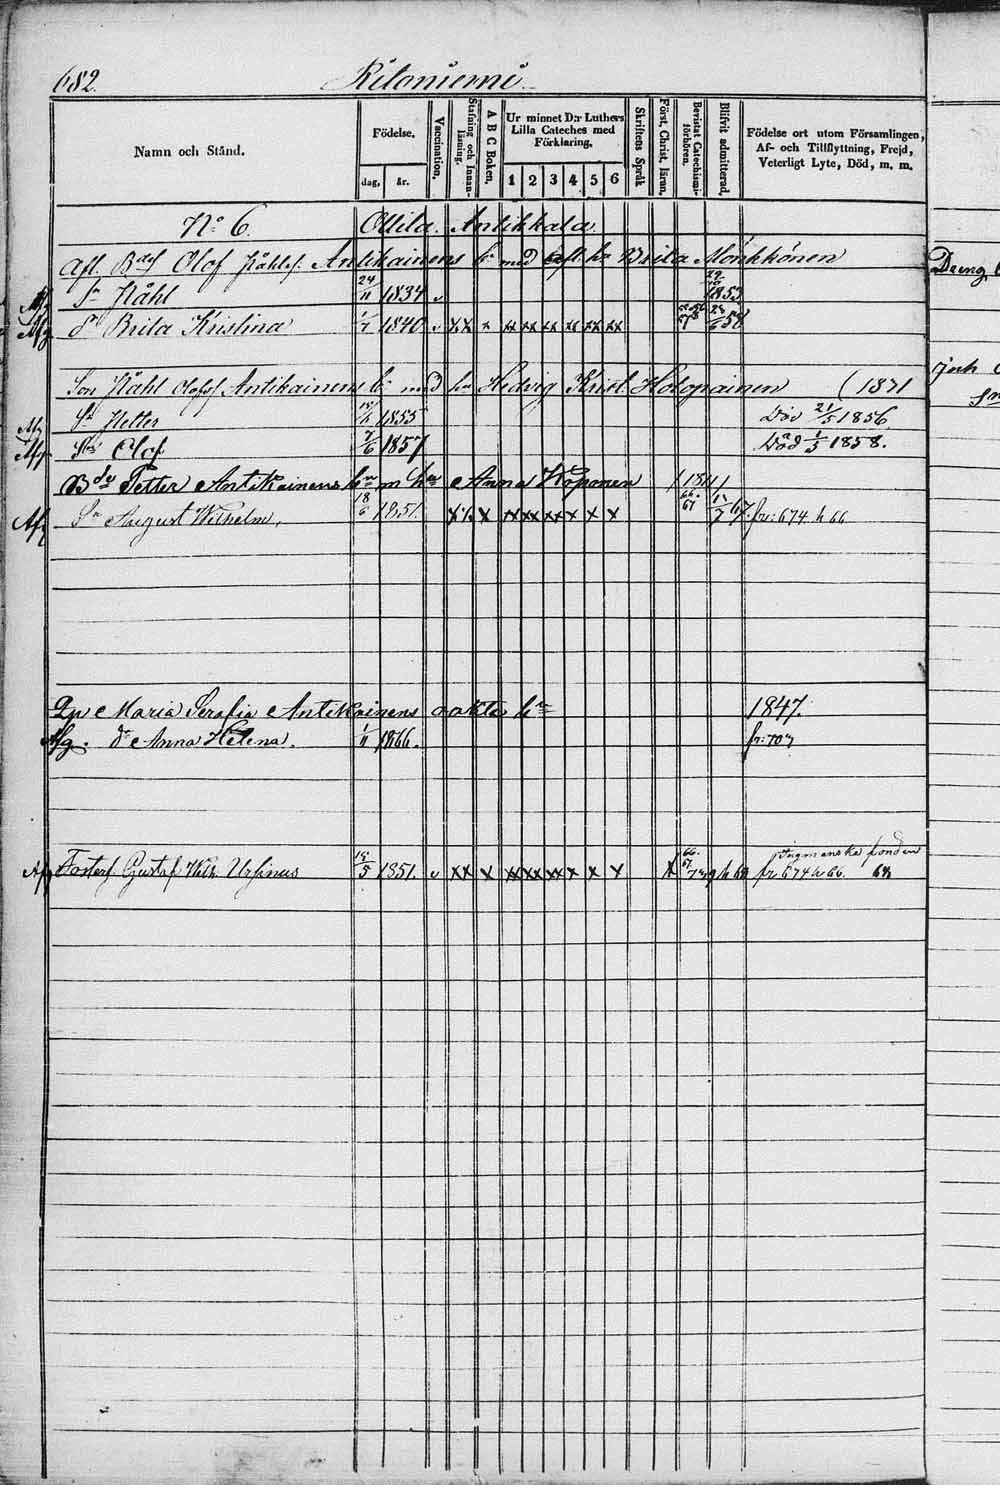 682.
Kiloniemi
Namn och Stånd.
Födelse.
dag, år.
Vaccination.
Stafning och Innan-
läsning.
A B C Boken,
Ur minnet D:r Luthers
Lilla Cateches med
Förklaring,
1 2 3 4 5 6
Skriftens Språk
Först, Christ, läran.
Bevistat Catechismi-
förhören.
Blifvit admitterad,
Födelse ort utom Församlingen,
Af- och Tillflyttning, Frejd,
Veterligt Lyte, Död, m. m.
No 6. Ollila. Antikkala
Afl. Olof Påhlsf. Antikainens bn med afl. hu Brita Mönkkönen
Sn Påhl 24/11 1834 v 29/10 1853
dr Brita Kristina 1/7 1840 v xx x xx xx xx xx xx xx 23/6 58
Son Påhl Olofsf Antikainens bn med hu Hedvig Krist. Holopainen (1831
Sn Petter 1855 Död 21/5 1856.
Sn Olof 7/6 1857 Död 1/5 1858.
Bdr Petter Antikainens bn m hu Anna Koponen
Sn August Wilhelm, 18/6 1851. xx x xx xx xx x x x 66. 67 67. fr: 674 h 66
Maria Serafia Antikainens oäkta bn 1847.
Afg. dr Anna Helena. 1/11 1866. fr: 707
Fosters Gustaf Wilh Ursinus 15/5 1851. v xx x xx xx xx x x x x 66. 67 fr 674 h 66.
Dreng